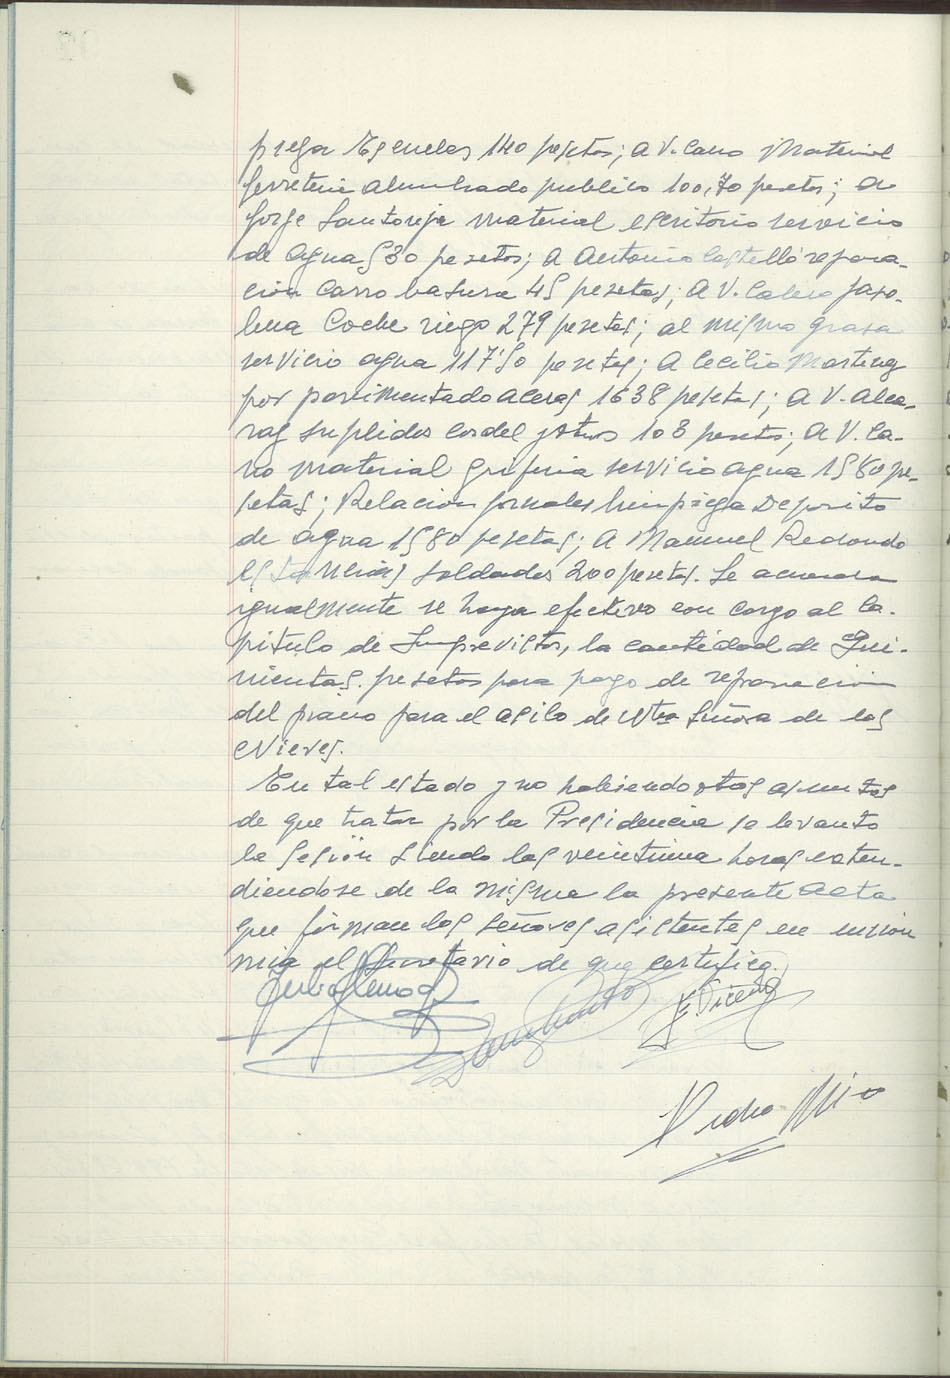 pieza Escuelas 140 pesetas; a V. Cano Material
ferreteria alumbrado publico 100,70 pesetas; a
Jorge Santonja material escritorio servicio
de agua 530 pesetas; a Antonio Castelló repara-
ción carro basura 45 pesetas; a V. Calero gaso-
lina Coche riego 279 pesetas; al mismo grasa
servicio agua 117'50 pesetas; a Cecilio Martinez
por pavimentado aceras 1638 pesetas; a V. Alca-
raz suplidos cordel y otros 103 pesetas; a V. Ca-
no material griferia servicio agua 1580 pe-
setas; Relacion jornales limpieza Deposito
de agua 1580 pesetas; a Manuel Redondo
estancias soldados 200 pesetas. Se acuerda
igualmente se haga efectivo con cargo al Ca-
pitulo de Imprevistos, la cantidad de Qui-
nientas pesetas para pago de reparacion
del piano para el asilo de Ntra Señora de las
Nieves.
En tal estado y no habiendo otros asuntos
de que tratar por la Presidencia se levanto
la sesión siendo las veintiuna horas exten-
diendose de la misma la presente acta
que firman los señores asistentes en union
mia el Secretario de que certifico.
Pedro Miro